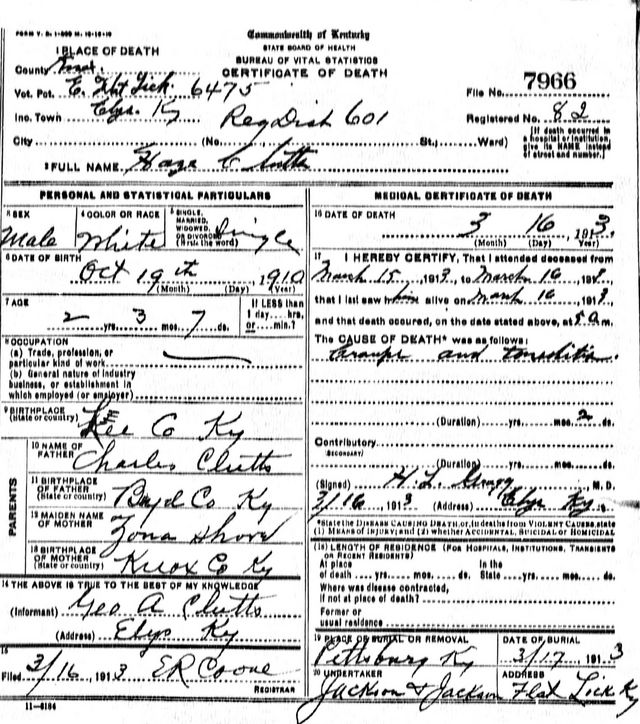 FORM V. S. 1-
Commonwealth of Kentucky
STATE BOARD OF HEALTH
BUREAU OF VITAL STATISTICS
CERTIFICATE OF DEATH
1 PLACE OF DEATH
County
Vot. Pct. E. Flat Lick 6475
File No. 7966
Inc. Town Elys. Ky
Reg Dist 601
Registered No. 82
City (No. St., Ward)
[If death occurred in a hospital or institution, give its NAME instead of street and number.]
2 FULL NAME C Clutts
PERSONAL AND STATISTICAL PARTICULARS
3 SEX Male
4 COLOR OR RACE White
5 SINGLE, MARRIED, WIDOWED OR DIVORCED (Write the word) Single
6 DATE OF BIRTH
Oct 19th, 1910
(Month) (Day) (Year)
7 AGE
2 yrs. 3 mos. 7 ds.
If LESS than 1 day.... hrs. or.... min.?
8 OCCUPATION
(a) Trade, profession, or particular kind of work
(b) General nature of industry business, or establishment in which employed (or employer)
9 BIRTHPLACE (State or country) Lee Co Ky
PARENTS
10 NAME OF FATHER Charles Clutts
11 BIRTHPLACE OF FATHER (State or country) Boyd Co Ky
12 MAIDEN NAME OF MOTHER Zona
13 BIRTHPLACE OF MOTHER (State or country) Knox Co Ky
14 THE ABOVE IS TRUE TO THE BEST OF MY KNOWLEDGE
(Informant) Geo A Clutts
(Address) Elys Ky
15
Filed 3/16, 1913 ER
REGISTRAR
11-6184
MEDICAL CERTIFICATE OF DEATH
16 DATE OF DEATH
3 16, 1913
(Month) (Day) (Year)
17 I HEREBY CERTIFY, That I attended deceased from
March 15, 1913, to March 16, 1913,
that I last saw him alive on March 16, 1913,
and that death occured, on the date stated above, at 5 a m.
The CAUSE OF DEATH* was as follows:
and
(Duration) yrs. mos. 2 ds.
Contributory
(SECONDARY)
(Duration) yrs. mos. ds.
(Signed) H. L. , M. D.
3/16, 1913 (Address) Elys Ky
*State the DISEASE CAUSING DEATH, or, in deaths from VIOLENT CAUSES, state (1) MEANS OF INJURY; and (2) whether ACCIDENTAL, SUICIDAL or HOMICIDAL
(18) LENGTH OF RESIDENCE (FOR HOSPITALS, INSTITUTIONS, TRANSIENTS OR RECENT RESIDENTS)
At place of death.... yrs. mos. ds. In the State.... yrs. mos. ds.
Where was disease contracted, if not at place of death?
Former or usual residence
19 PLACE OF BURIAL OR REMOVAL Ky
DATE OF BURIAL 3/17, 1913
20 UNDERTAKER Jackson & Jackson
ADDRESS Flat Lick Ky